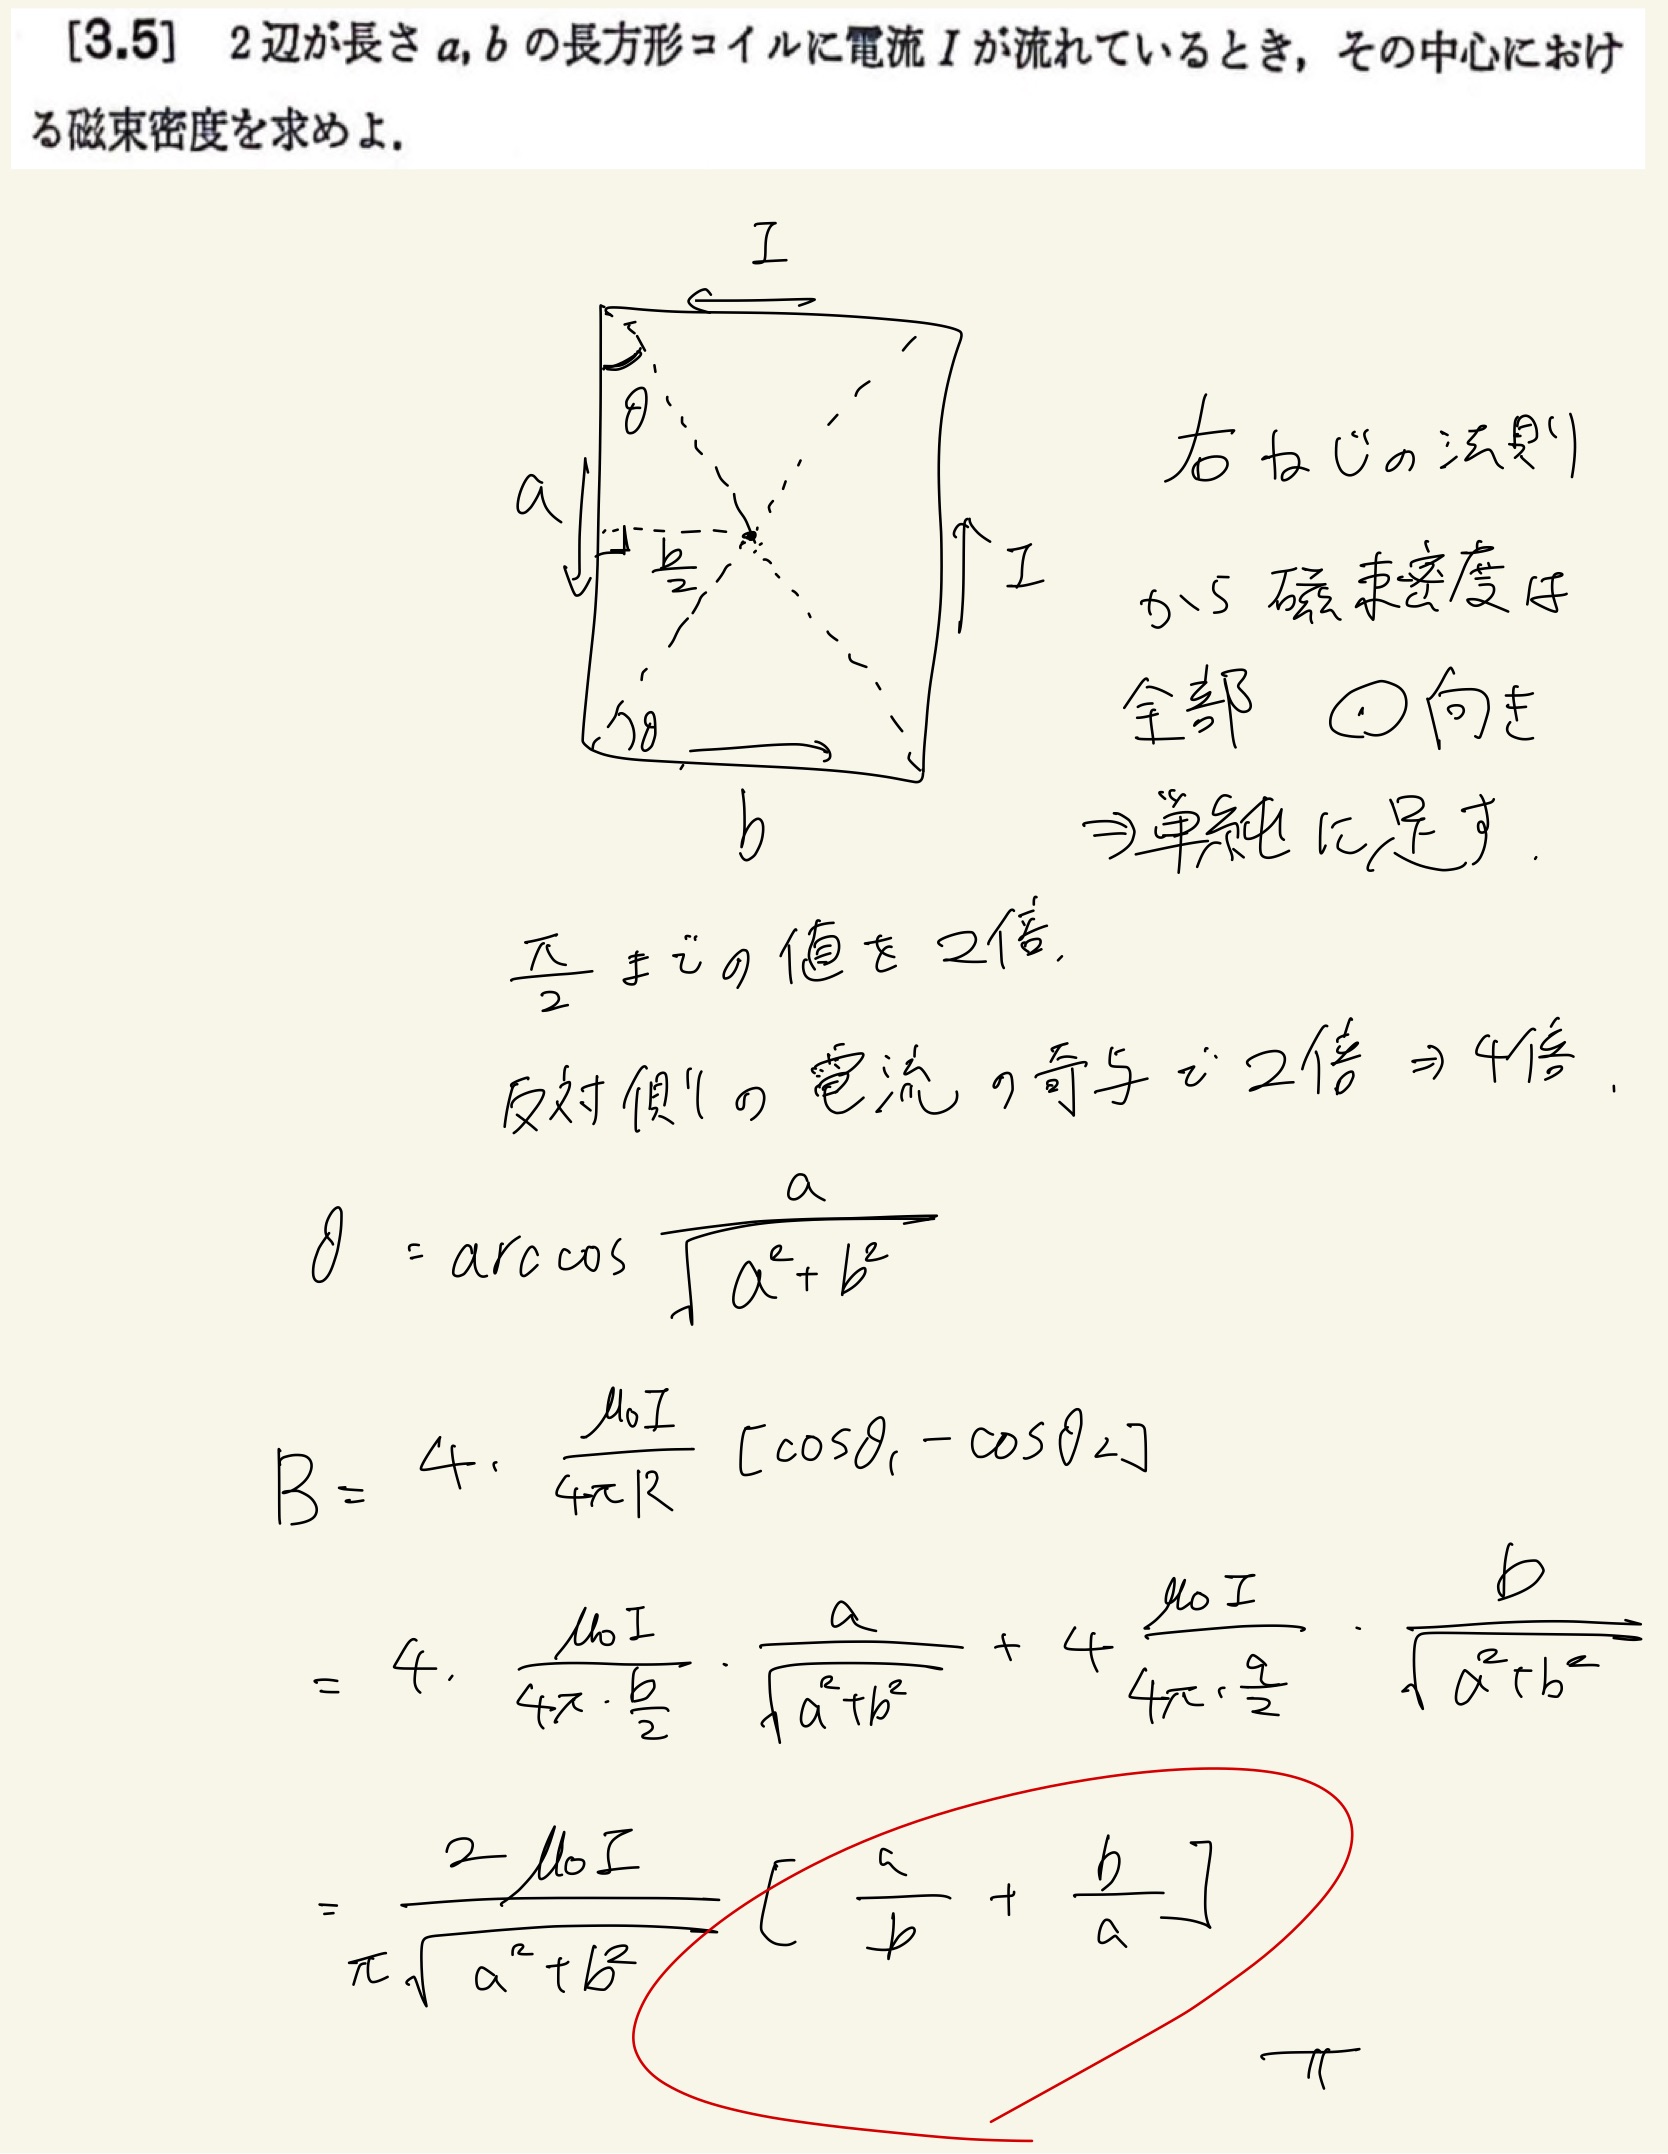 [3.5] 2辺が長さ a, b の長方形コイルに電流 I が流れているとき，その中心におけ
る磁束密度を求めよ．
I
θ
a
b/2
I
θ
b
右ねじの法則
から 磁束密度は
全部 ⊙向き
⇒単純に足す.
π/2 までの値を2倍.
反対側の電流の寄与で2倍 ⇒ 4倍.
θ = arccos a/√(a²+b²)
B = 4・μ₀I/(4πR) [cosθ₁ - cosθ₂]
= 4・μ₀I/(4π・b/2)・a/√(a²+b²) + 4 μ₀I/(4π・a/2)・b/√(a²+b²)
= 2μ₀I/(π√(a²+b²)) [a/b + b/a]